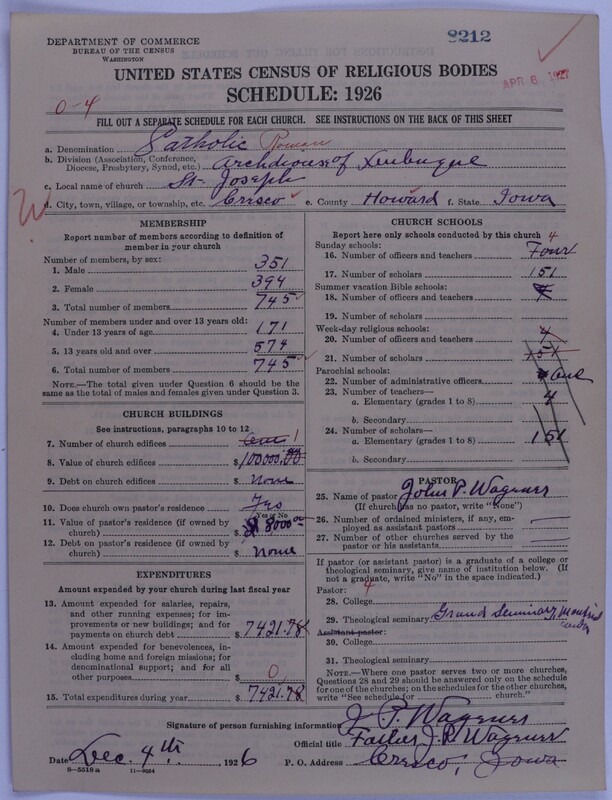 8212
DEPARTMENT OF COMMERCE
BUREAU OF THE CENSUS
WASHINGTON
APR 8 1927
UNITED STATES CENSUS OF RELIGIOUS BODIES
SCHEDULE: 1926
0-4
FILL OUT A SEPARATE SCHEDULE FOR EACH CHURCH. SEE INSTRUCTIONS ON THE BACK OF THIS SHEET
a. Denomination Catholic Roman
b. Division (Association, Conference, Diocese, Presbytery, Synod, etc.) Archdiocese of Dubuque
c. Local name of church St. Joseph
d. City, town, village, or township, etc. Cresco e. County Howard f. State Iowa
MEMBERSHIP
Report number of members according to definition of
member in your church
Number of members, by sex:
1. Male 351
2. Female 394
3. Total number of members 745
Number of members under and over 13 years old:
4. Under 13 years of age 171
5. 13 years old and over 574
6. Total number of members 745
NOTE.—The total given under Question 6 should be
the same as the total of males and females given under Question 3.
CHURCH BUILDINGS
See instructions, paragraphs 10 to 12
7. Number of church edifices One 1
8. Value of church edifices $100000.00
9. Debt on church edifices $ None
10. Does church own pastor's residence? Yes
Yes or No
11. Value of pastor's residence (if owned by
church) $ 8000
12. Debt on pastor's residence (if owned by
church) $ None
EXPENDITURES
Amount expended by your church during last fiscal year
13. Amount expended for salaries, repairs,
and other running expenses; for im-
provements or new buildings; and for
payments on church debt $ 7421.78
14. Amount expended for benevolences,
including home and foreign missions; for
denominational support; and for all
other purposes $ 0
15. Total expenditures during year $ 7421.78
CHURCH SCHOOLS
Report here only schools conducted by this church
Sunday schools: 4
16. Number of officers and teachers Four
17. Number of scholars 151
Summer vacation Bible schools:
18. Number of officers and teachers
19. Number of scholars
Week-day religious schools:
20. Number of officers and teachers 4
21. Number of scholars 151
Parochial schools:
22. Number of administrative officers One
23. Number of teachers—
a. Elementary (grades 1 to 8) 4
b. Secondary
24. Number of scholars—
a. Elementary (grades 1 to 8) 151
b. Secondary
PASTOR
25. Name of pastor John P. Wagener
(If church has no pastor, write "None")
26. Number of ordained ministers, if any, em-
ployed as assistant pastors
27. Number of other churches served by the
pastor or his assistants
If pastor (or assistant pastor) is a graduate of a college or
theological seminary, give name of institution below. (If
not a graduate, write "No" in the space indicated.)
Pastor: 4
28. College
29. Theological seminary Grand Seminary,
Assistant pastor:
30. College
31. Theological seminary
NOTE.—Where one pastor serves two or more churches,
Questions 28 and 29 should be answered only on the schedule
for one of the churches; on the schedules for the other churches,
write "See schedule for church."
Signature of person furnishing information J. P. Wagener
Official title Father J. P. Wagener
Date Dec. 4th, 1926 P. O. Address Cresco, Iowa
8-5518a 11-9064